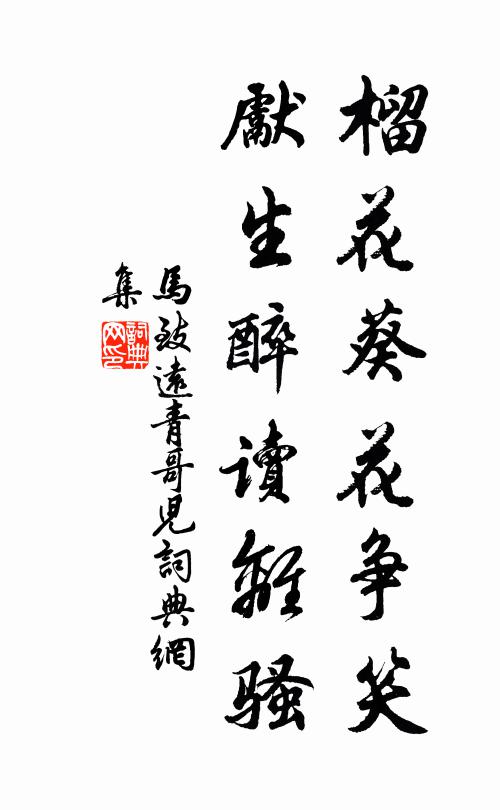 榴花葵花争笑
獻生醉读離骚
馬致遠青哥児詞典網
集
詞典网印